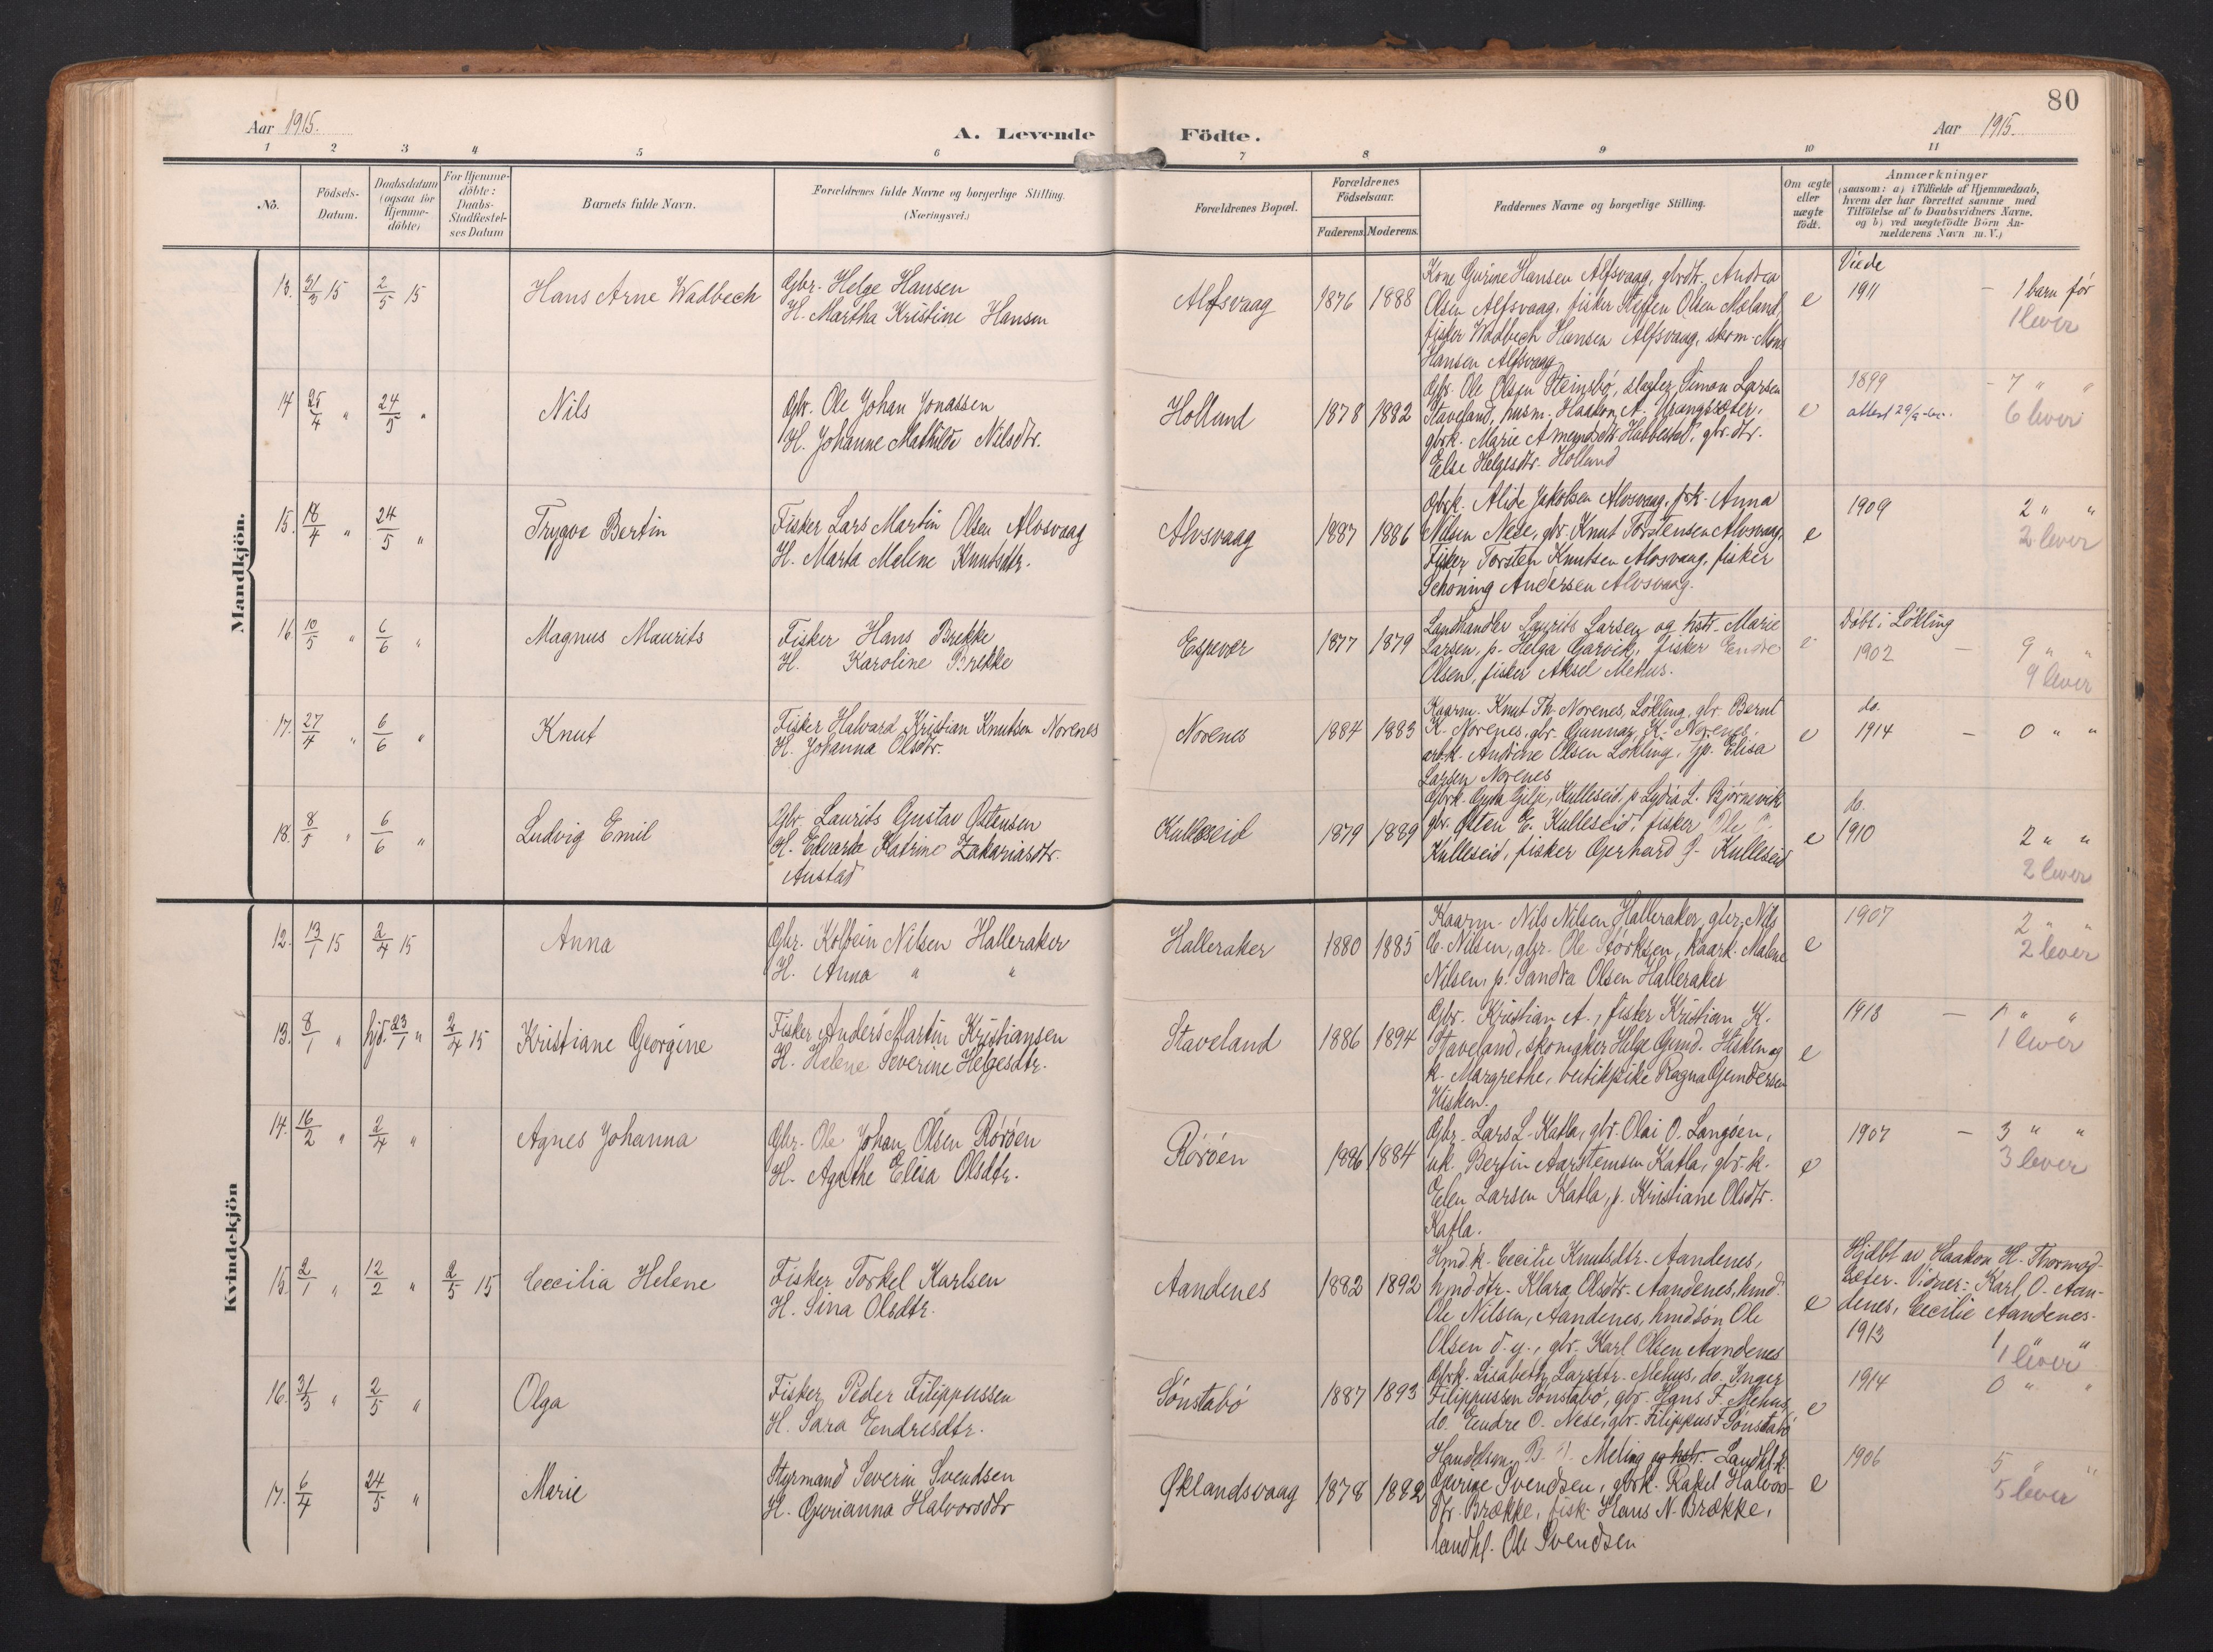 80
Aar 1915.
A. Levende Födte.
Aar 1915.
1 2 3 4 5 6 7 8 9 10 11
No.
Födsels-Datum.
Daabsdatum (ogsaa for Hjemme-döbte)
For Hjemme-döbte: Daabs-Stadfæstel-ses Datum
Barnets fulde Navn.
Forældrenes fulde Navne og borgerlige Stilling.
(Næringsvei.)
Forældrenes Bopæl.
Forældrenes Födselsaar.
Faderens. Moderens.
Faddernes Navne og borgerlige Stilling.
Om ægte eller uægte födt.
Anmærkninger
(saasom: a) i Tilfælde af Hjemmedaab,
hvem der har forrettet samme med
Tilföielse af to Daabsvidners Navne.
og b) ved uægtefödte Börn An-
melderens Navn m. V.)
Mandkjön.
13. 31/3 15 2/5 15 Hans Arne Wadbech
Gbr. Helge Hansen
H. Martha Kristine Hansen
Alfsvaag 1876 1888
Kone Gurine Hansen Alfsvaag, gbrdtr. Andrea
Olsen Alfsvaag, fisker Steffen Olsen Mæland,
fisker Wadbech Hansen Alfsvaag, skom. Mons
Hansen Alfsvaag
e
Viede
1911 - 1 barn før
1 lever
14 25/4 " 24/5 " Nils
Gbr. Ole Johan Jonassen
H. Johanne Mathilde Nilsdtr.
Holland 1878 1882
Gbr. Ole Olsen Steinsbø, slagter Simon Larsen
Staveland, husm. Haakon A.
gbrk. Marie gbr.dtr.
Else Helgesdtr. Holland
e
1899 - 7 " "
attest 29/9
6 lever
15. 18/4 " 24/5 " Trygve Bertin
Fisker Lars Martin Olsen Alvsvaag
H. Marta Malene Knutsdtr.
Alvsvaag 1887 1886
Gbrk. Alide Jakobsen Alvsvaag, fsk. Anna
Nilsen Nese, gbr. Knut Torstensen Alvsvaag,
Fisker Torsten Knutsen Alvsvaag, fisker
Schøning Andersen Alvsvaag.
e
1909 2 " "
2 lever
16. 10/5 " 6/6 " Magnus Maurits
Fisker Hans Brekke
H. Karoline Brekke
Espevær 1877 1879
Landhandler Laurits Larsen og hstr. Marie
Larsen, p. Helga Garvik, fisker Endre
Olsen, fisker Aksel Mehus.
e
Døbt i Løkling
1902 - 9 " "
9 lever
17. 27/4 " 6/6 " Knut
Fisker Halvard Kristian Knutsen Norenes
H. Johanna Olsdtr.
Norenes 1884 1883
Kaarm. Knut Th. Norenes, Løkling, gbr. Bernt
K. Norenes, gbr. Gunnar K. Norenes,
arbk. Andrine Olsen Løkling, p. Elisa
Larsen Norenes
e
do.
1914 - 0 " "
18. 8/5 " 6/6 " Ludvig Emil
Gbr. Laurits Gustav Østensen
H. Edvarda Katrine Zakariasdtr.
Austad
Kulleseid 1879 1889
Gbrk. Gilje, Kulleseid, p. Lydia L. Bjørnevik
gbr. Østen E. Kulleseid, fisker Ole
Kulleseid, fisker Gerhard G. Kulleseid
e
do.
1910 2 " "
2 lever
Kvindekjön
12. 13/1 15 2/4 15 Anna
Gbr. Kolbein Nilsen Halleraker
H. Anna " "
Halleraker 1880 1885
Kaarm. Nils Nilsen Halleraker, gbr. Nils
C. Nilsen, gbr. Ole Størksen, Kaark. Malene
Nilsen, p. Sandra Olsen Halleraker
e
1907 2 " "
2 lever
13. 8/1 " hjd. 23/1 " 2/4 15 Kristiane Georgine
Fisker Anders Martin Kristiansen
H. Helene Severine Helgesdtr.
Staveland 1886 1894
Gbr. Kristian A., fisker Kristian K.
Staveland, skomaker Helge Gund. Hisken og
k. Margrethe, butikpike Ragna Gundersen
Hisken.
e
1913 - 1 " "
1 lever
14. 16/2 " 2/4 " Agnes Johanna
Gbr. Ole Johan Olsen Rørøen
H. Agathe Elisa Olsdtr.
Rørøen 1886 1884
Gbr. Lars L. Katla, gbr. Olai O. Langøen,
uk. Bertin Aarstensen Katla, gbr.k.
Elen Larsen Katla, p. Kristiane Olsdtr.
Katla.
e
1907 - 3 " "
3 lever
15. 2/1 " 12/2 " 2/5 15 Cecilia Helene
Fisker Torkel Karlsen
H. Sina Olsdtr.
Aandenes 1882 1892
Hmd.k. Cecilie Knutsdtr. Aandenes,
hmd.dtr. Klara Olsdtr. Aandenes, hmd.
Ole Nilsen, Aandenes, hmd.søn Ole
Olsen d.y., gbr. Karl Olsen Aandenes
e
Hjdbt av Haakon H. Thormod-
sæter. Vidner: Karl O. Aan-
denes, Cecilie Aandenes.
1913 1 " "
1 lever
16. 31/3 " 2/5 " Olga
Fisker Peder Filippussen
H. Sara Endresdtr.
Sønstabø 1887 1893
Gbrk. Lisabeth Larsdtr. Mehus, do. Inger
Filippussen Sønstabø, gbr. Hans F. Mehus,
do. Endre O. Nese, gbr. Filippus F. Sønstabø
e
1914 0 " "
17. 6/4 24/5 " Marie
Styrmand Severin Svendsen
H. Gurianna Halvorsdtr
Øklandsvaag 1878 1882
Handelsm. B. Meling og hstr. Landhl.k.
Gurine Svendsen, gbrk. Rakel Halvors-
dtr. Brække, fisk. Hans N. Brække,
landhl. Ole Svendsen
e
1906 5 " "
5 lever